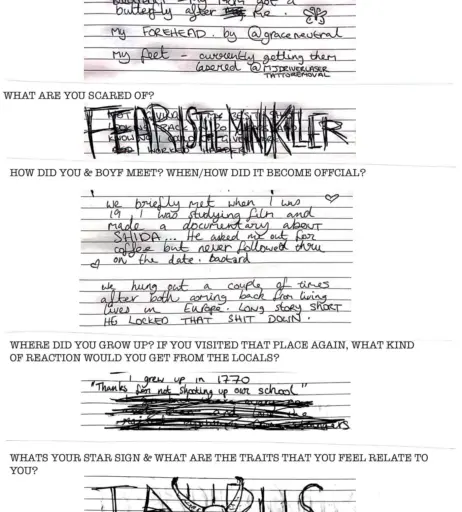 butterfly after me.
My FOREHEAD. by @graceneutral
My feet - currently getting them
lasered @MJDRIVERLASER
TATTOREMOVAL
WHAT ARE YOU SCARED OF?
FEAR IS THE MINDKILLER
HOW DID YOU & BOYF MEET? WHEN/HOW DID IT BECOME OFFCIAL?
we briefly met when I was
19 I was studying film and
made a documentary about
SHIDA... He asked me out for
coffee but never followed thru
on the date. Bastard
we hung out a couple of times
after both coming back from living
lives in Europe. LONG STORY SHORT
HE LOCKED THAT SHIT DOWN.
WHERE DID YOU GROW UP? IF YOU VISITED THAT PLACE AGAIN, WHAT KIND
OF REACTION WOULD YOU GET FROM THE LOCALS?
I grew up in 1770
"Thanks for not shooting up our school"
WHATS YOUR STAR SIGN & WHAT ARE THE TRAITS THAT YOU FEEL RELATE TO
YOU?
TAURUS